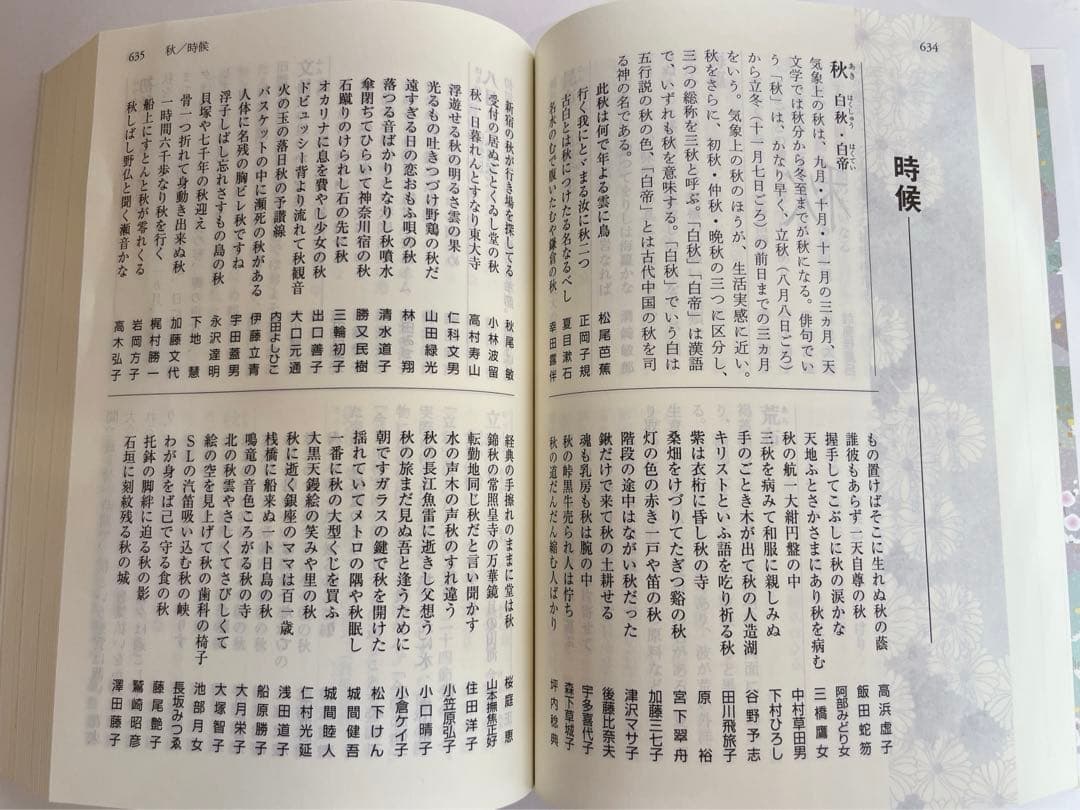 634
時候
秋 あき 白秋・白帝 はくしゅう・はくてい
気象上の秋は、九月・十月・十一月の三ヵ月、天
文学では秋分から冬至までが秋になる。俳句でい
う「秋」は、かなり早く、立秋（八月八日ごろ）
から立冬（十一月七日ごろ）の前日までの三ヵ月
をいう。気象上の秋のほうが、生活実感に近い。
秋をさらに、初秋・仲秋・晩秋の三つに区分し、
三つの総称を三秋と呼ぶ。「白秋」「白帝」は漢語
で、いずれも秋を意味する。「白秋」でいう白は
五行説の秋の色、「白帝」とは古代中国の秋を司
る神の名である。
此秋は何で年よる雲に鳥 松尾芭蕉
行く我にとゞまる汝に秋二つ 正岡子規
古白とは秋につけたる名なるべし 夏目漱石
名水のむで腹いたむや鎌倉の秋 幸田露伴
もの置けばそこに生れぬ秋の蔭 高浜虚子
誰彼もあらず一天自尊の秋 飯田蛇笏
握手してこぶしに秋の涙かな 阿部みどり女
天地ふとさかさまにあり秋を病む 三橋鷹女
秋の航一大紺円盤の中 中村草田男
三秋を病みて和服に親しみぬ 下村ひろし
手のごとき木が出て秋の人造湖 谷野予志
キリストといふ語を吃り祈る秋 田川飛旅子
紫は衣桁に昏し秋の寺 原裕
桑畑をけづりてたぎつ谿の秋 宮下翠舟
灯の色の赤き一戸や笛の秋 加藤三七子
階段の途中はながい秋だった 津沢マサ子
鍬だけで来て秋の土耕せる 後藤比奈夫
魂も乳房も秋は腕の中 宇多喜代子
秋の峠黒牛売られ人は佇ち 森下草城子
秋の道だんだん縮む人ばかり 坪内稔典
635 秋／時候
新宿の秋が行き場を探してる 秋尾敏
受付の居ぬごとくゐし堂の秋 小林波留
秋一日暮れんとすなり東大寺 高村寿山
浮遊せる秋の明るさ雲の果 仁科文男
光るもの吐きつづけ野鶏の秋だ 山田緑光
遠すぎる日の恋おもふ唄の秋 林翔
落つる音ばかりとなりし秋噴水 清水道子
傘閉ぢてひらいて神奈川宿の秋 勝又民樹
石蹴りのけられし石の先に秋 三輪初子
オカリナに息を費やし少女の秋 出口善子
ドビュッシー背より流れて秋観音 大口元通
火の玉の落日秋の予讃線 内田よしひこ
バスケットの中に瀕死の秋がある 伊藤立青
人体に名残の胸ビレ秋ですね 宇田蓋男
浮子しばし忘れさすもの島の秋 永沢達明
貝塚や七千年の秋迎え 下地慧
骨一つ折れて身動き出来ぬ秋 加藤文代
一時間六千歩なり秋を行く 梶村勝一
船上にすとんと秋が零れくる 岩岡方子
秋しばし野仏と聞く瀬音かな 高木弘子
経典の手擦れのままに堂は秋 桜庭恵
錦秋の常照皇寺の万華鏡 山本撫焦正好
転勤地同じ秋だと言い聞かす 住田洋子
水の声木の声秋のすれ違う 小笠原弘子
秋の長江魚雷に逝きし父想う 小口晴子
秋の旅まだ見ぬ吾と逢うために 小倉ケイ子
朝ですガラスの鍵で秋を開けた 松下けん
揺れていてメトロの隅や秋眠し 城間健吾
一番に秋の大型くじを買ふ 城間睦人
大黒天鏝絵の笑みや里の秋 仁村光延
秋に逝く銀座のママは百一歳 浅田道子
桟橋に船来ぬ一ト日島の秋 船原勝子
鳴竜の音色ころがる秋の寺 大月栄子
北の秋雲やさしくてさびしくて 大塚智子
絵の空を見上げて秋の歯科の椅子 池部月女
ＳＬの汽笛吸い込む秋の峡 長坂みつゑ
わが身をば己で守る食の秋 藤尾艶子
托鉢の脚絆に迫る秋の影 鷲崎昭彦
石垣に刻紋残る秋の城 澤田藤子